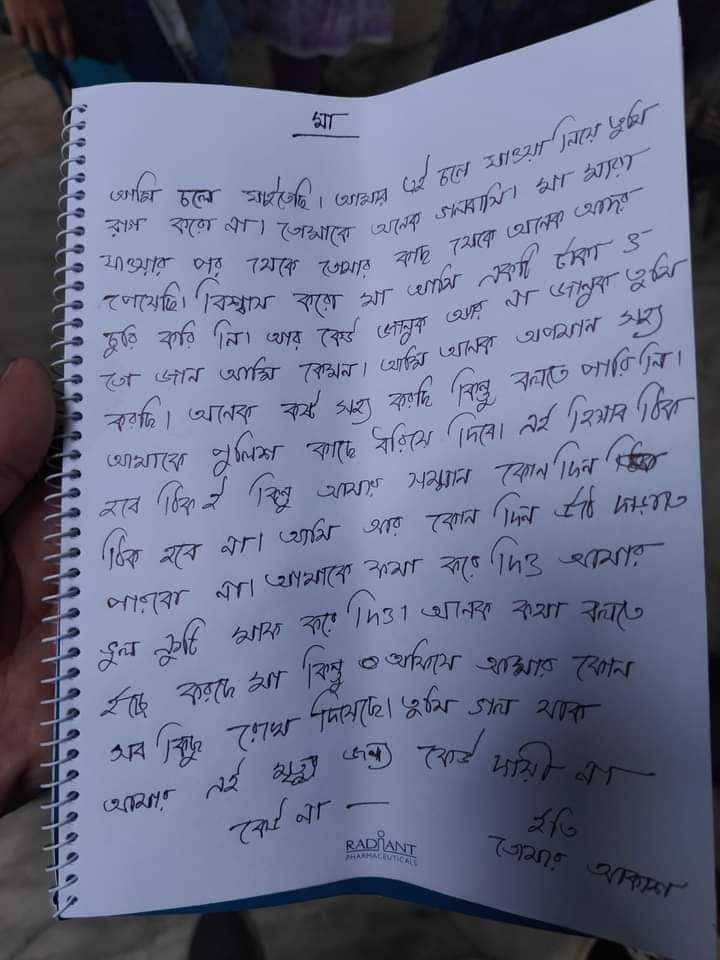 মা
আমি চলে যাইতেছি। আমার এই চলে যাওয়া নিয়ে তুমি
রাগ করো না। তোমাকে অনেক ভালবাসি। মা মারা
যাওয়ার পর থেকে তোমার কাছ থেকে অনেক আদর
পেয়েছি। বিশ্বাস করো মা আমি একটি টাকা ও
চুরি করি নি। আর কেউ জানুক আর না জানুক তুমি
তো জান আমি কেমন। আমি অনেক অপমান সহ্য
করছি। অনেক কষ্ট সহ্য করছি কিন্তু বলতে পারি নি।
আমাকে পুলিশ কাছে ধরিয়ে দিবে। এই হিসাব ঠিক
হবে ঠিক ই কিন্তু আমার সম্মান কোন দিন
ঠিক হবে না। আমি আর কোন দিন উঠে দাড়াত
পারবো না। আমাকে ক্ষমা করে দিও আমার
ভুল ত্রুটি মাফ করে দিও। অনেক কথা বলতে
ইচ্ছে করছে মা কিন্তু অফিসে আমার ফোন
সব কিছু রেখে দিয়েছে। তুমি ভাল থাক
আমার এই মৃত্যু জন্য কেউ দায়ী না
কেউ না —
ইতি
তোমার আকাশ
RADIANT
PHARMACEUTICALS